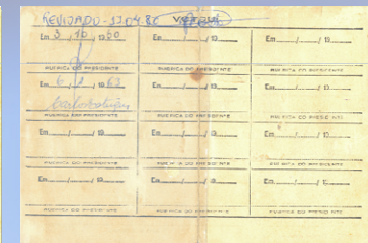 REVISADO - 13.04.80
Em 3 / 10 / 1960 Em ___/___/ 19___ Em ___/___/ 19___
RUBRICA DO PRESIDENTE RUBRICA DO PRESIDENTE RUBRICA DO PRESIDENTE
Em 6 / / 1963 Em ___/___/ 19___ Em ___/___/ 19___
RUBRICA DO PRESIDENTE RUBRICA DO PRESIDENTE RUBRICA DO PRESIDENTE
Em ___/___/ 19___ Em ___/___/ 19___ Em ___/___/ 19___
RUBRICA DO PRESIDENTE RUBRICA DO PRESIDENTE RUBRICA DO PRESIDENTE
Em ___/___/ 19___ Em ___/___/ 19___ Em ___/___/ 19___
RUBRICA DO PRESIDENTE RUBRICA DO PRESIDENTE RUBRICA DO PRESIDENTE